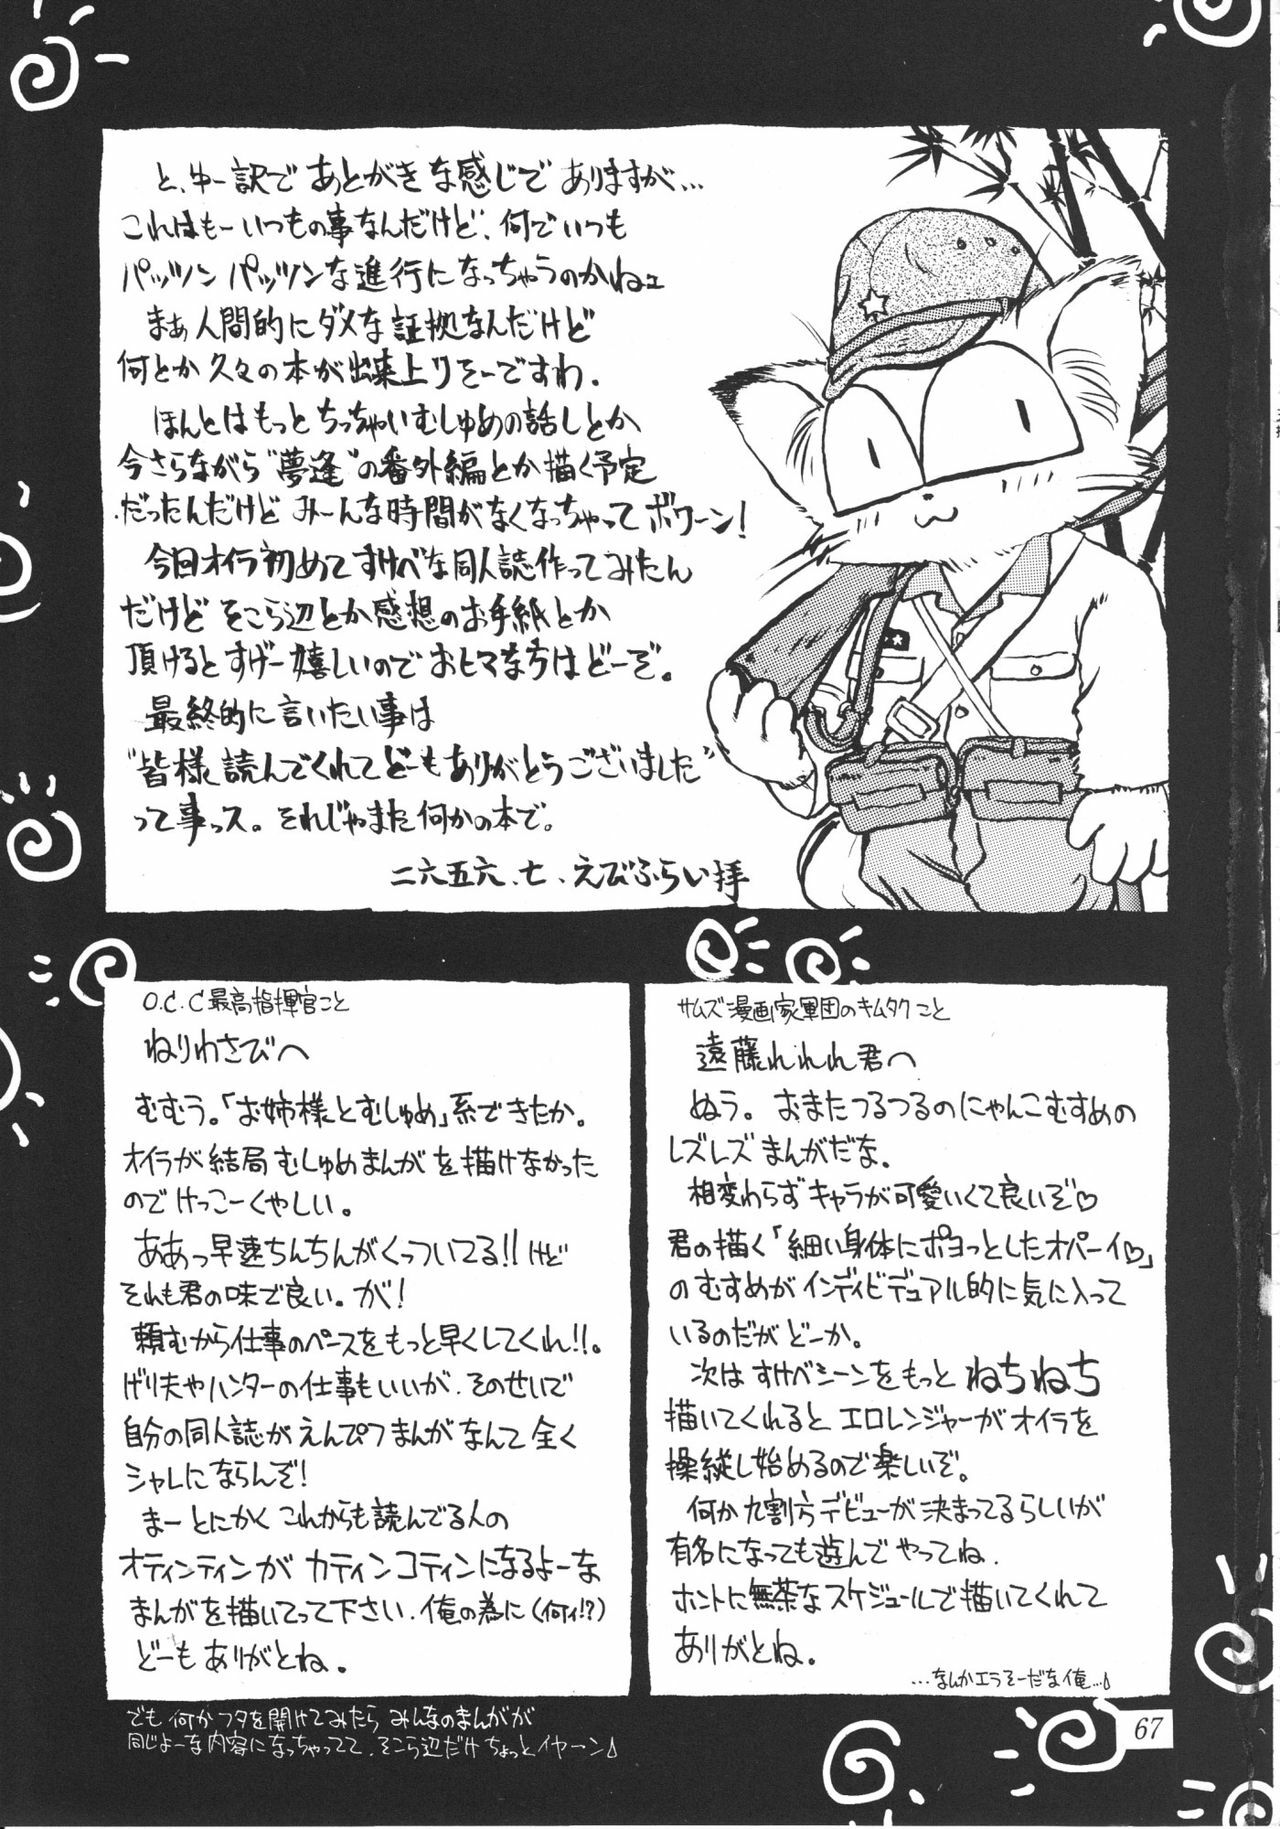 と、ゆー訳であとがきな感じでありますが…
これはもーいつもの事なんだけど、何でいつも
パッツンパッツンな進行になっちゃうのかねェ
まぁ人間的にダメな証拠なんだけど
何とか久々の本が出来上りそーですわ。
ほんとはもっとちっちゃいむしゅめの話しとか
今さらながら“夢逢”の番外編とか描く予定
だったんだけどみーんな時間がなくなっちゃってボワーン!
今回オイラ初めてすけべな同人誌作ってみたん
だけどそこら辺とか感想のお手紙とか
頂けるとすげー嬉しいのでおヒマな方はどーぞ。
最終的に言いたい事は
“皆様、読んでくれてどーもありがとうございました”
って事っス。それじゃまた何かの本で。
二六五六、七、えびふらい拝
O.C.C最高指揮官こと
ねりわさびへ
むむう。「お姉様とむしゅめ」系できたか。
オイラが結局むしゅめまんがを描けなかった
のでけっこーくやしい。
ああっ早速ちんちんがくっついてる!!けど
それも君の味で良い。が!
頼むから仕事のペースをもっと早くしてくれ!!。
げり夫やハンターの仕事もいいが、そのせいで
自分の同人誌がえんぴつまんがなんて全く
シャレにならんぞ!
まーとにかくこれからも読んでる人の
オティンティンがカティンコティンになるよーな
まんがを描いてって下さい、俺の為に(何ィ!?)
どーもありがとね。
でも何かフタを開けてみたらみんなのまんがが
同じよーな内容になっちゃってて、そこら辺だけちょっとイヤーン♪
サムズ漫画家軍団のキムタクこと
遠藤れれれ君へ
ぬう。おまたつるつるのにゃんこむすめの
レズレズまんがだな。
相変わらずキャラが可愛いくて良いぞ♡
君の描く「細い身体にポヨっとしたオパーイ♡」
のむすめがインディビデュアル的に気に入って
いるのだがどーか。
次はすけべシーンをもっとねちねち
描いてくれるとエロレンジャーがオイラを
操縦し始めるので楽しいぞ。
何か九割方デビューが決まってるらしいが
有名になっても遊んでやってね、
ホントに無茶なスケジュールで描いてくれて
ありがとね。
…なんかエラそーだな俺…♪
67